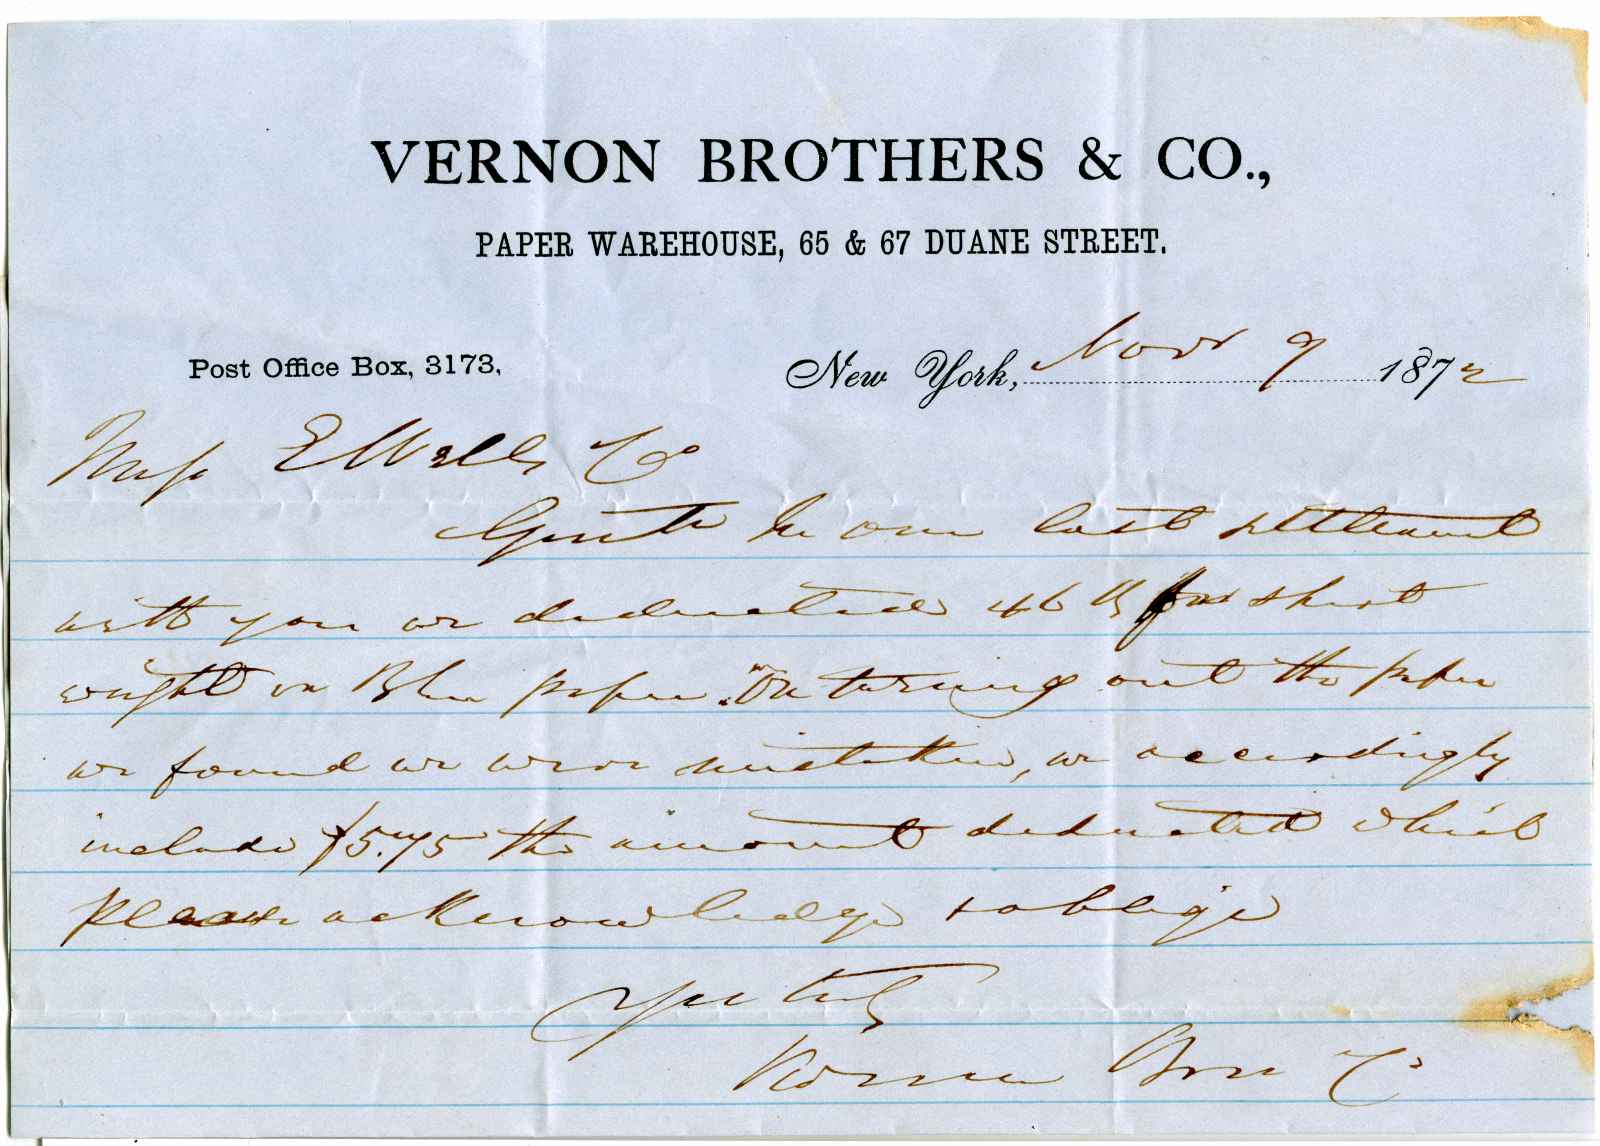 VERNON BROTHERS & CO.,
PAPER WAREHOUSE, 65 & 67 DUANE STREET.
Post Office Box, 3173,
New York, Nov 9 1872
Mess E Wells Co
Gents In our last settlement
with you we deducted 46 lb for short
weight on Blue paper. On turning out the paper
we found we were mistaken, we accordingly
include $5.75 the amount deducted which
please acknowledge & oblige
Yrs truly
Vernon Bros Co